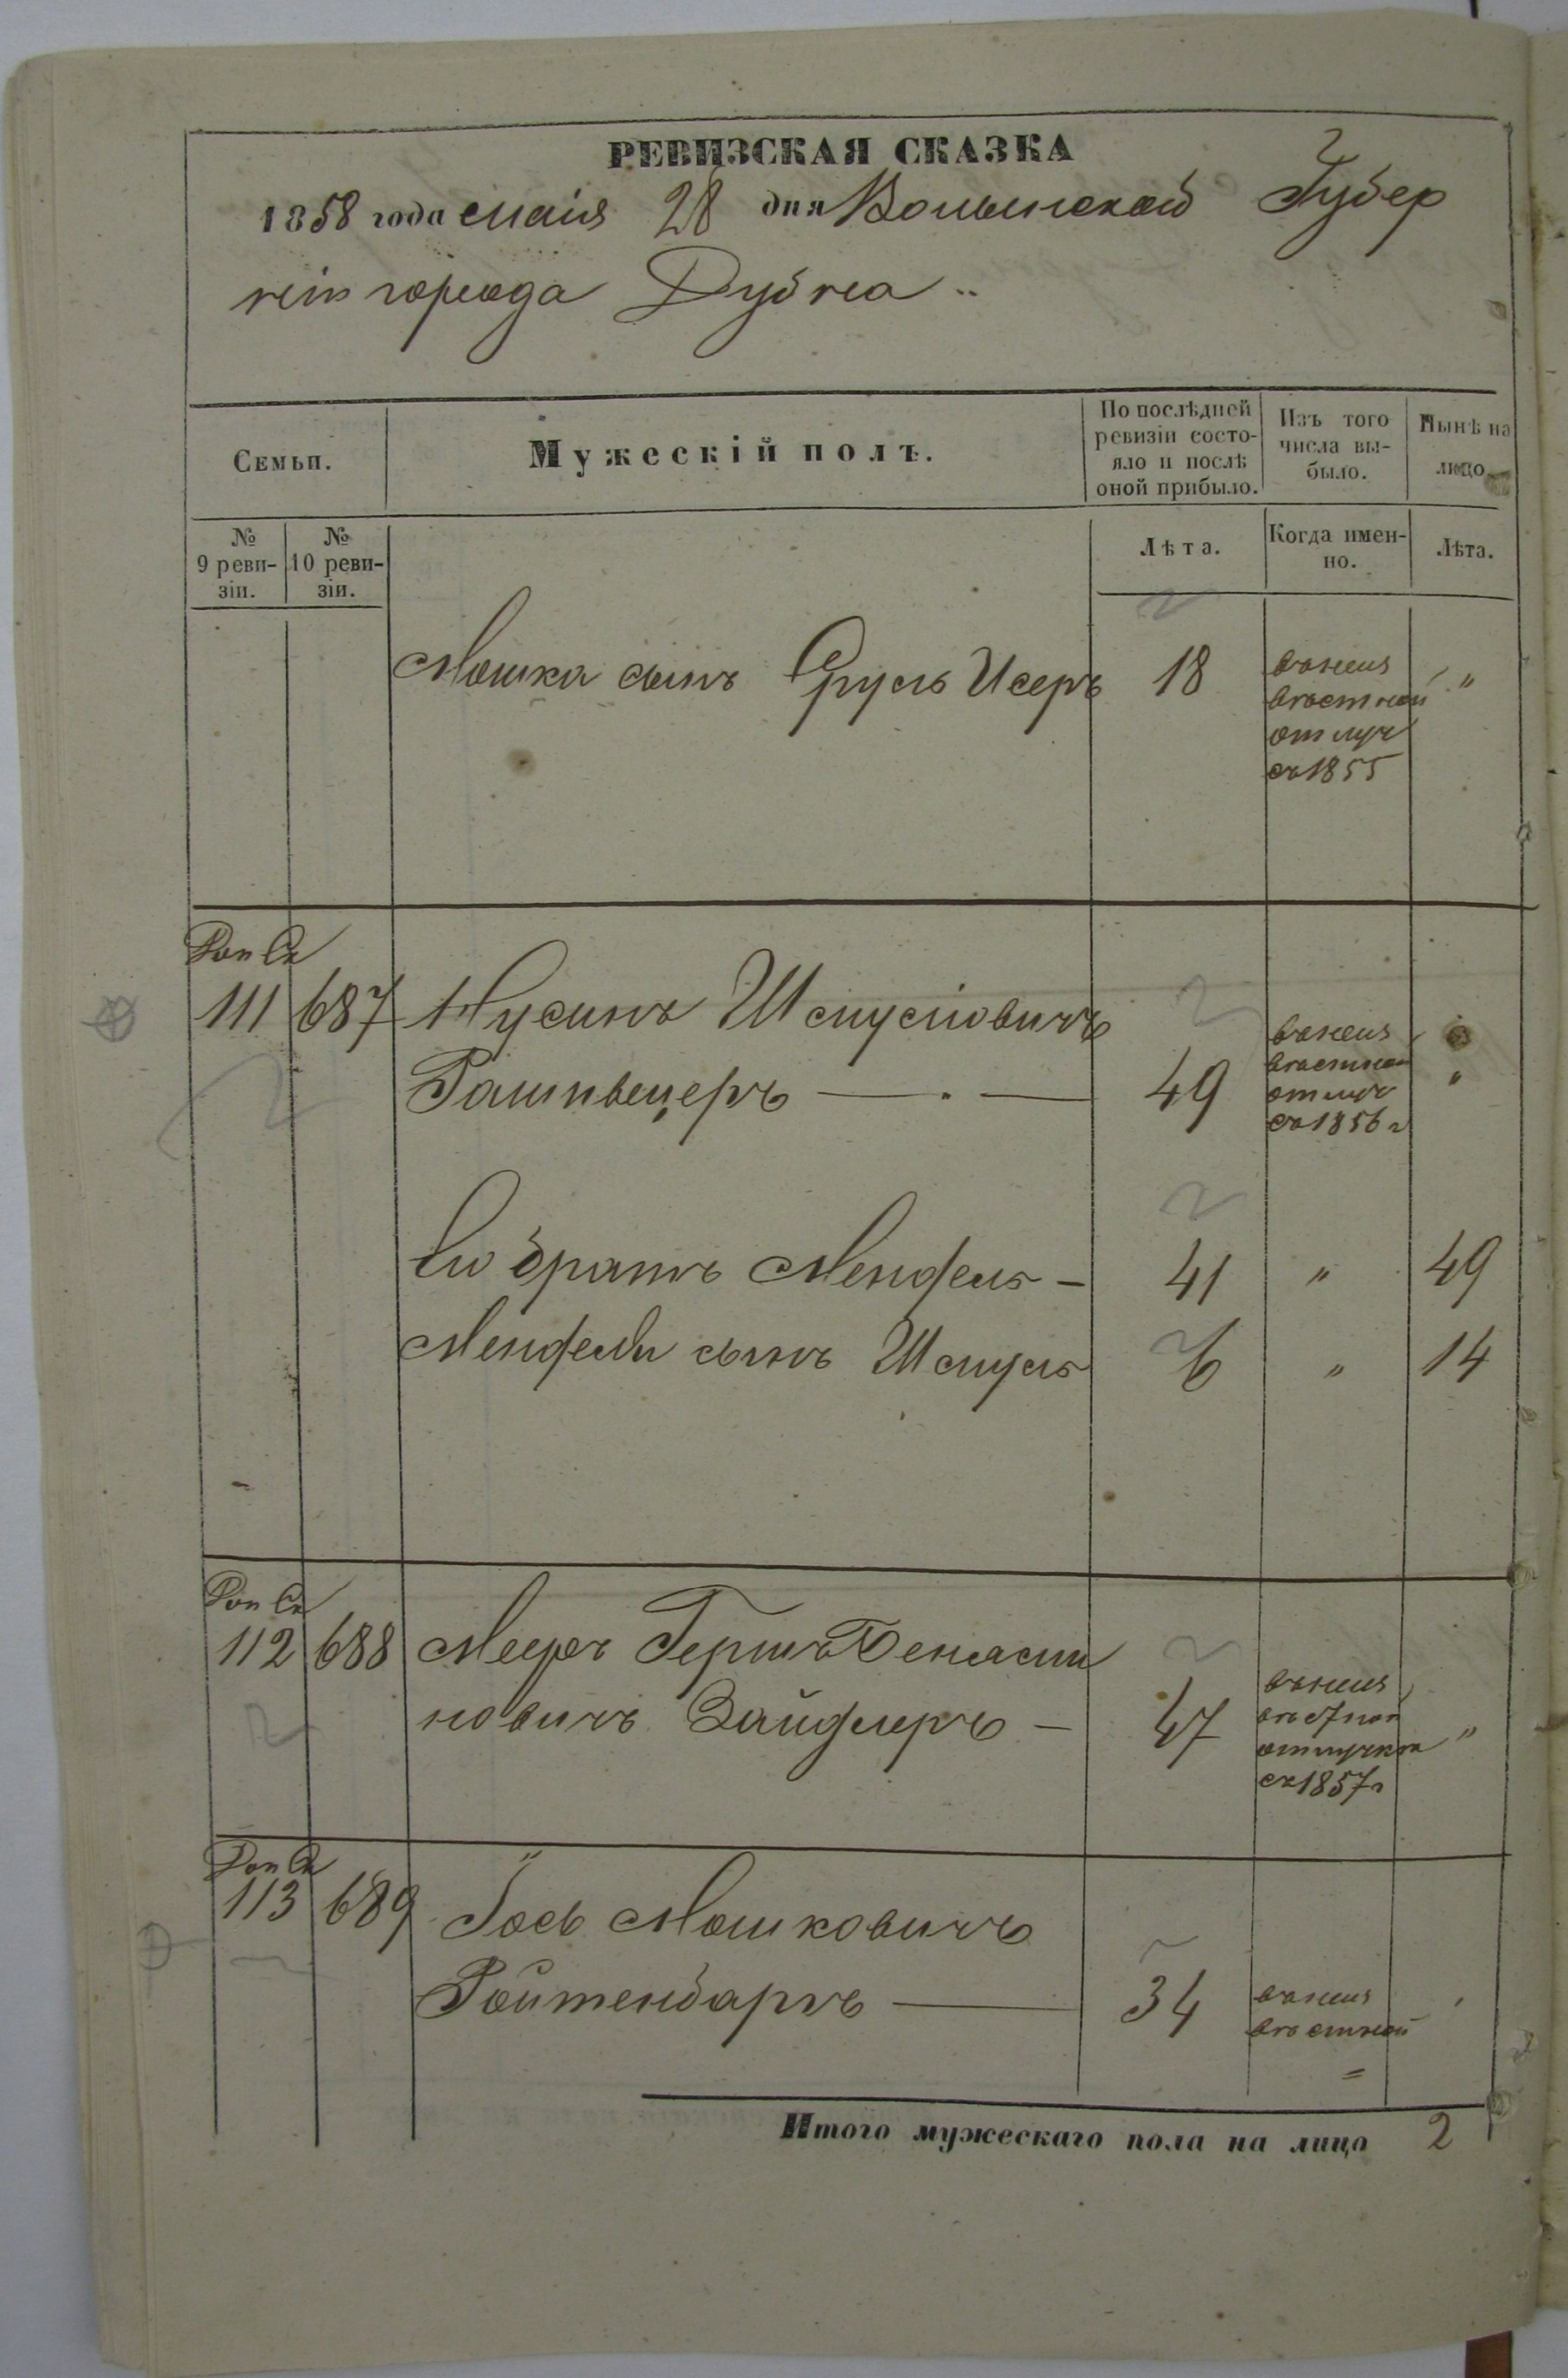 РЕВИЗСКАЯ СКАЗКА
1858 года маія 28 дня Волынской Губер
ніи города Дубна
Семьи.
Мужескій полъ.
По послѣдней ревизіи состо-
яло и послѣ
оной прибыло.
Изъ того
числа вы-
было.
Нынѣ на
лицо
№
9 реви-
зіи.
№
10 реви-
зіи.
Лѣта.
Когда имен-
но.
Лѣта.
Мошка сынъ Сруль Исеръ 18 "
отлуч
съ 1855
111 687 Нусинъ Шмулювичъ
49 "
отлуч
съ 1856 г
Его братъ Мендель - 41 " 49
Менделя сынъ Шмуль 6 " 14
112 688 Мееръ Гершъ Беньями
новичъ Зайдлеръ - 47 "
отлучкѣ
съ 1857 г
113 689 Іось Мошковичъ
Ройтенбаргъ — 34
Итого мужескаго пола на лицо 2